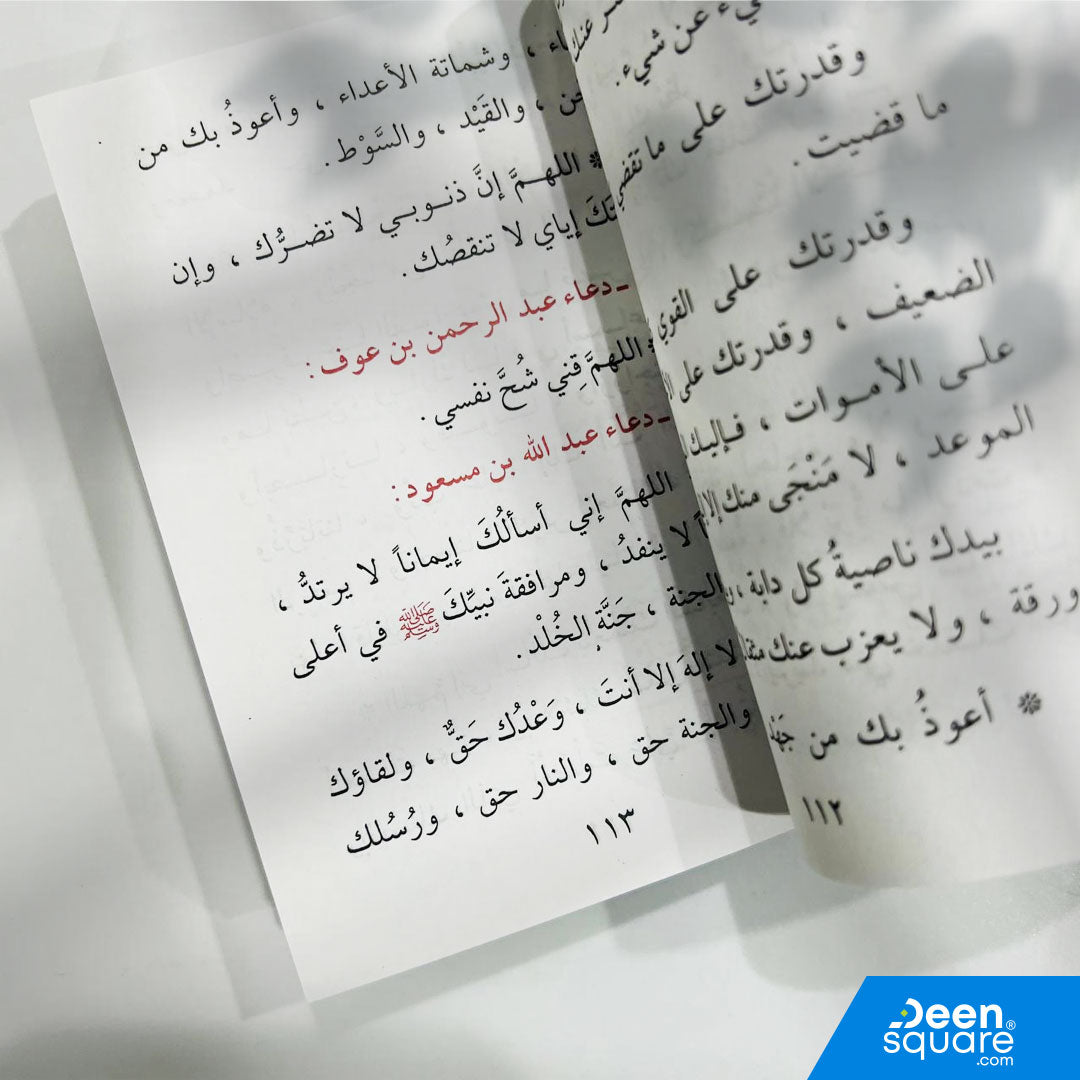 ء عن شيء .
وقدرتك على ما تقضي
ما قضيت .
وقدرتك على القوي
الضعيف ، وقدرتك على
على الأموات ، فإليك
الموعد ، لا مَنْجَى منك إلا
بيدك ناصيةُ كل دابة ،
ورقة ، ولا يعزب عنك
* أعوذُ بك من
١١٢
، وشماتة الأعداء ، وأعوذُ بك من
، والقَيْد ، والسَّوْط .
* اللهمَّ إنَّ ذنوبي لا تضرُّك ، وإن
إياي لا تنقصُك .
ـ دعاء عبد الرحمن بن عوف :
* اللهمَّ قِني شُحَّ نفسي .
ـ دعاء عبد الله بن مسعود :
اللهمَّ إني أسألُكَ إيماناً لا يرتدُّ ،
لا ينفدُ ، ومرافقةَ نبيِّكَ ﷺ في أعلى
الجنة ، جَنَّةِ الخُلْد .
لا إلهَ إلا أنتَ ، وَعْدُك حَقٌّ ، ولقاؤك
والجنة حق ، والنار حق ، ورُسُلك
١١٣
Deen®
square
.com